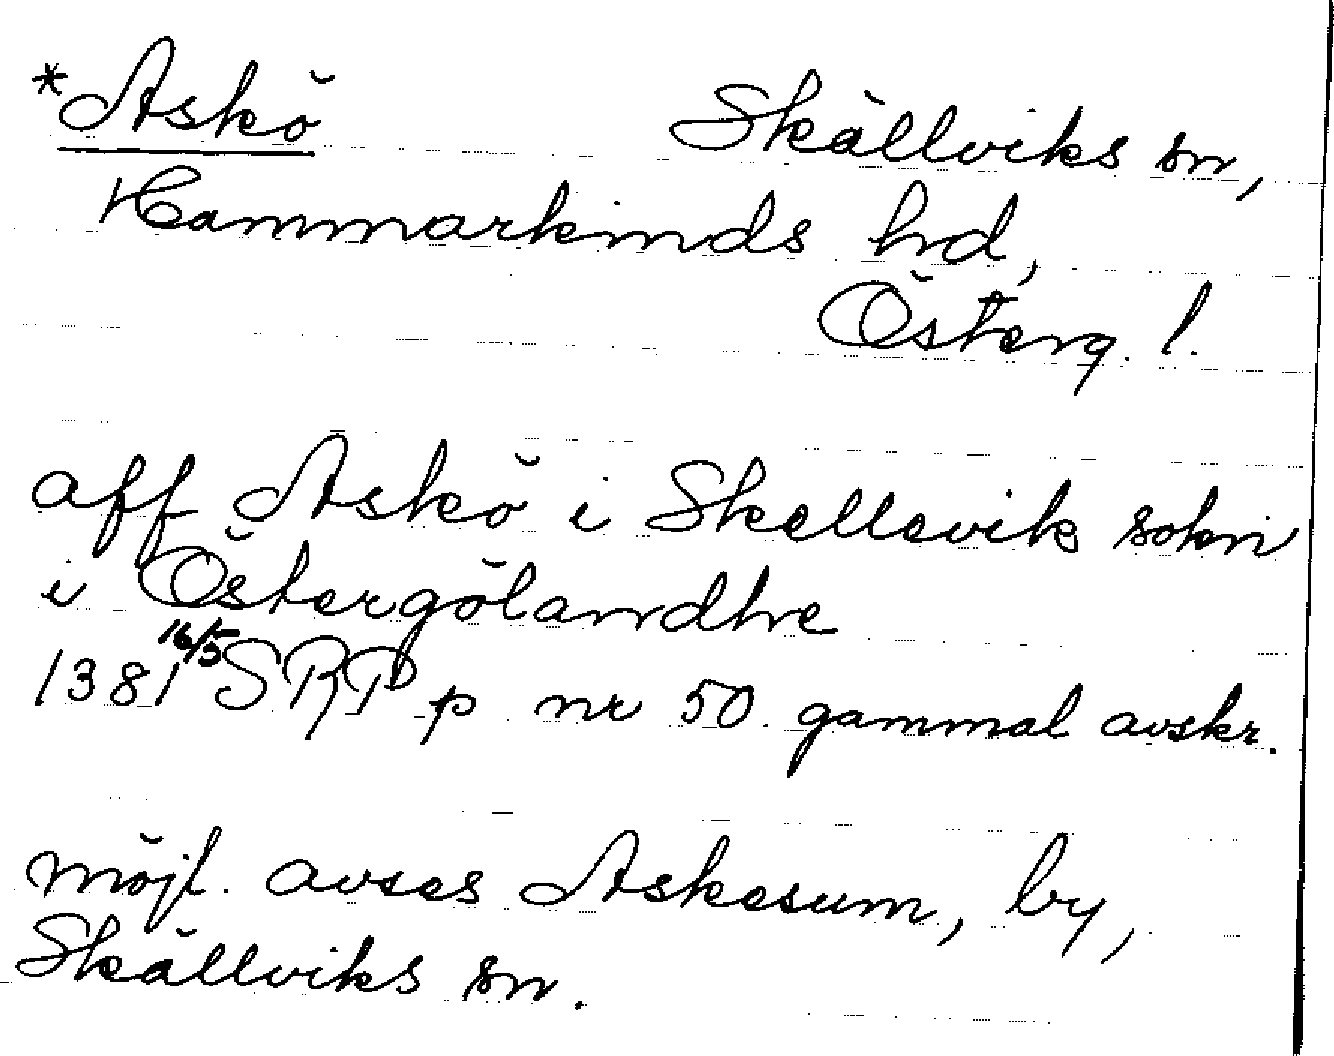 *Askö Skällviks sn,
Hammarkinds hd,
Österg. l.
aff Askö i Skellevik sokn
i Östergölandhe
1381 16/5 SRP p nr 50. gammal avskr.
möjl. avses Askesum, by,
Skällviks sn.